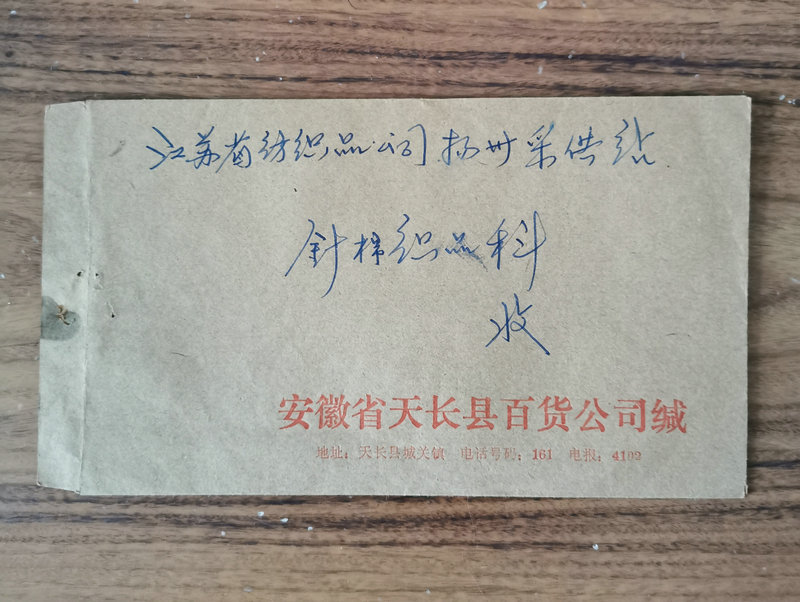 江苏省纺织品公司扬州采供站
针棉织品科
收
安徽省天长县百货公司缄
地址：天长县城关镇 电话号码：161 电报：4102